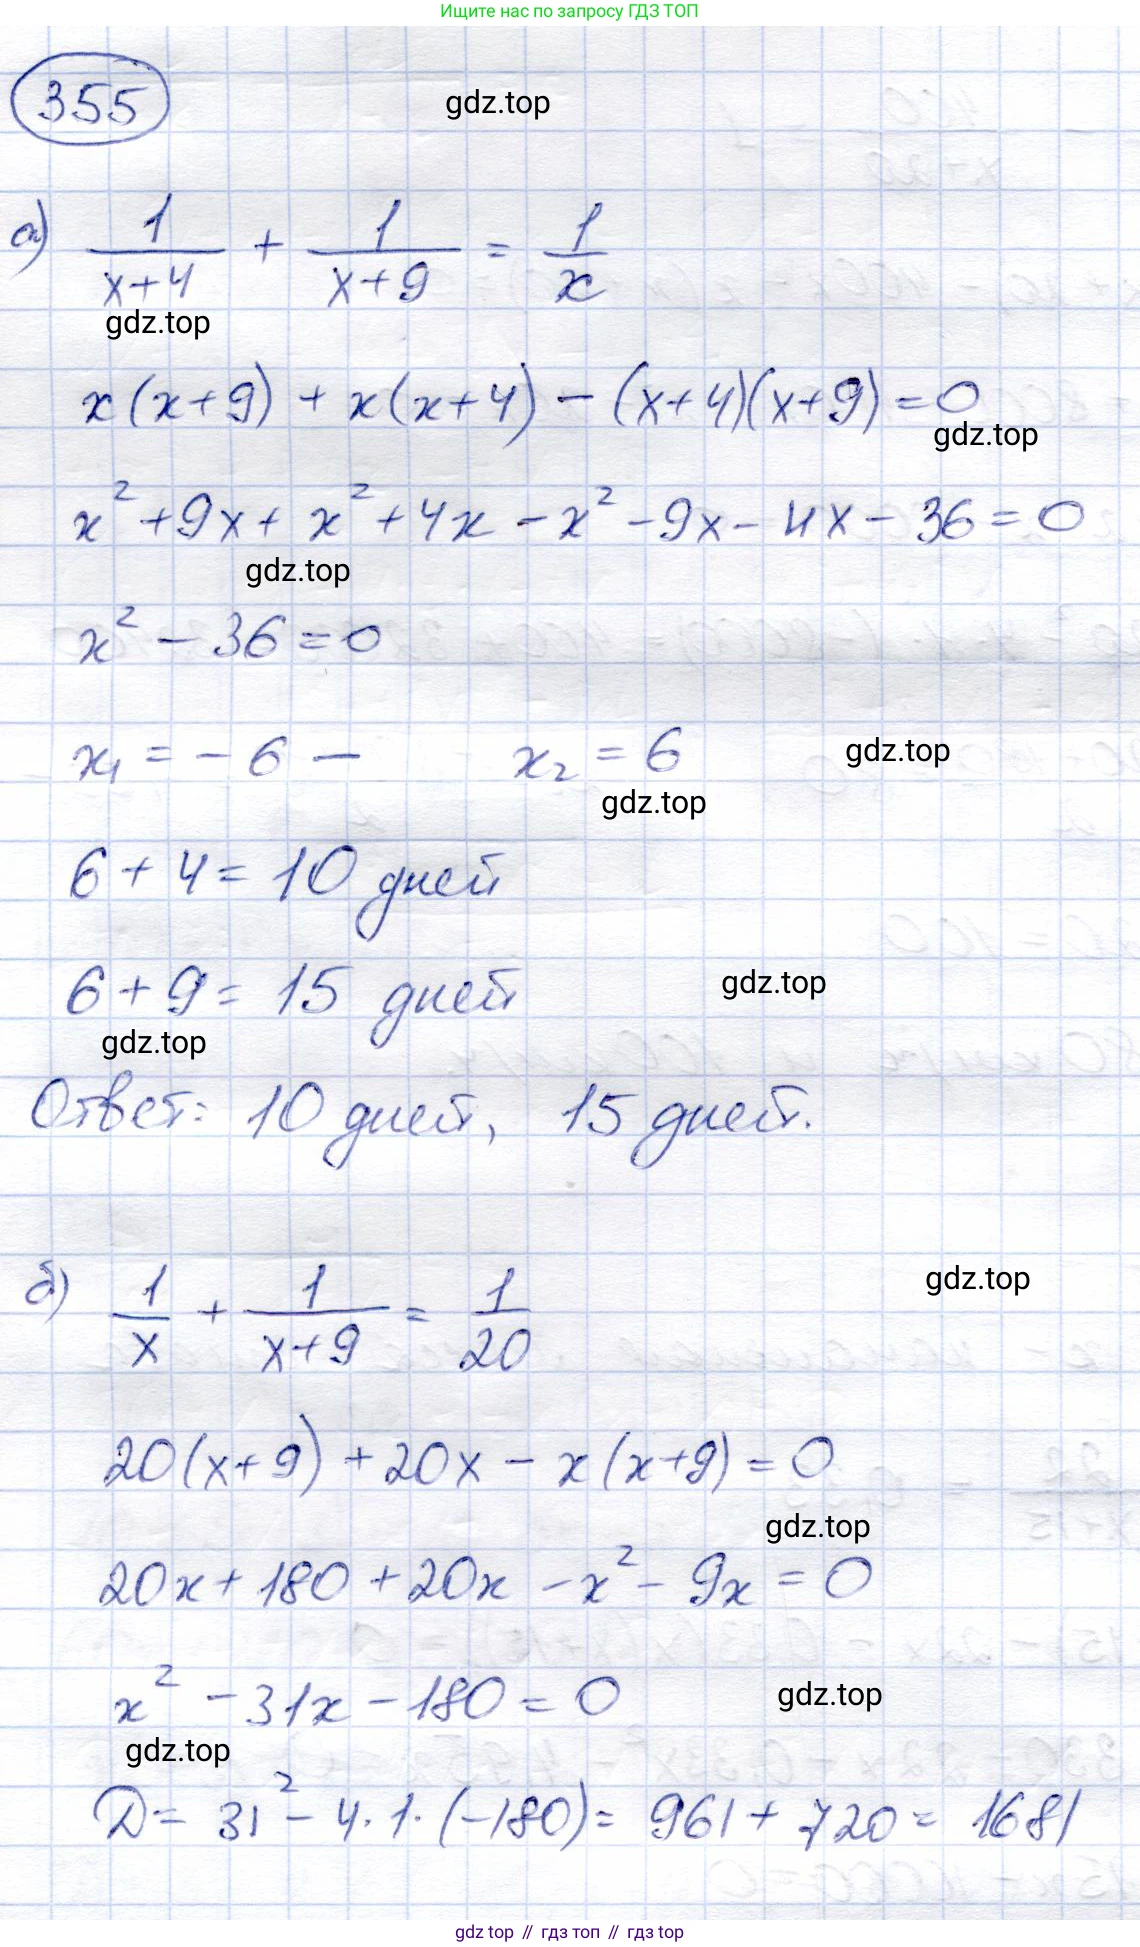 Ищите нас по запросу ГДЗ ТОП
355
gdz.top
а) 1/(x+4) + 1/(x+9) = 1/x
gdz.top
x(x+9) + x(x+4) - (x+4)(x+9) = 0
gdz.top
x² + 9x + x² + 4x - x² - 9x - 4x - 36 = 0
gdz.top
x² - 36 = 0
x₁ = -6 - x₂ = 6
gdz.top
gdz.top
6 + 4 = 10 дней
6 + 9 = 15 дней
gdz.top
gdz.top
Ответ: 10 дней, 15 дней.
gdz.top
б) 1/x + 1/(x+9) = 1/20
20(x+9) + 20x - x(x+9) = 0
gdz.top
20x + 180 + 20x - x² - 9x = 0
x² - 31x - 180 = 0
gdz.top
gdz.top
Д = 31² - 4·1·(-180) = 961 + 720 = 1681
gdz top // гдз топ // gdz top